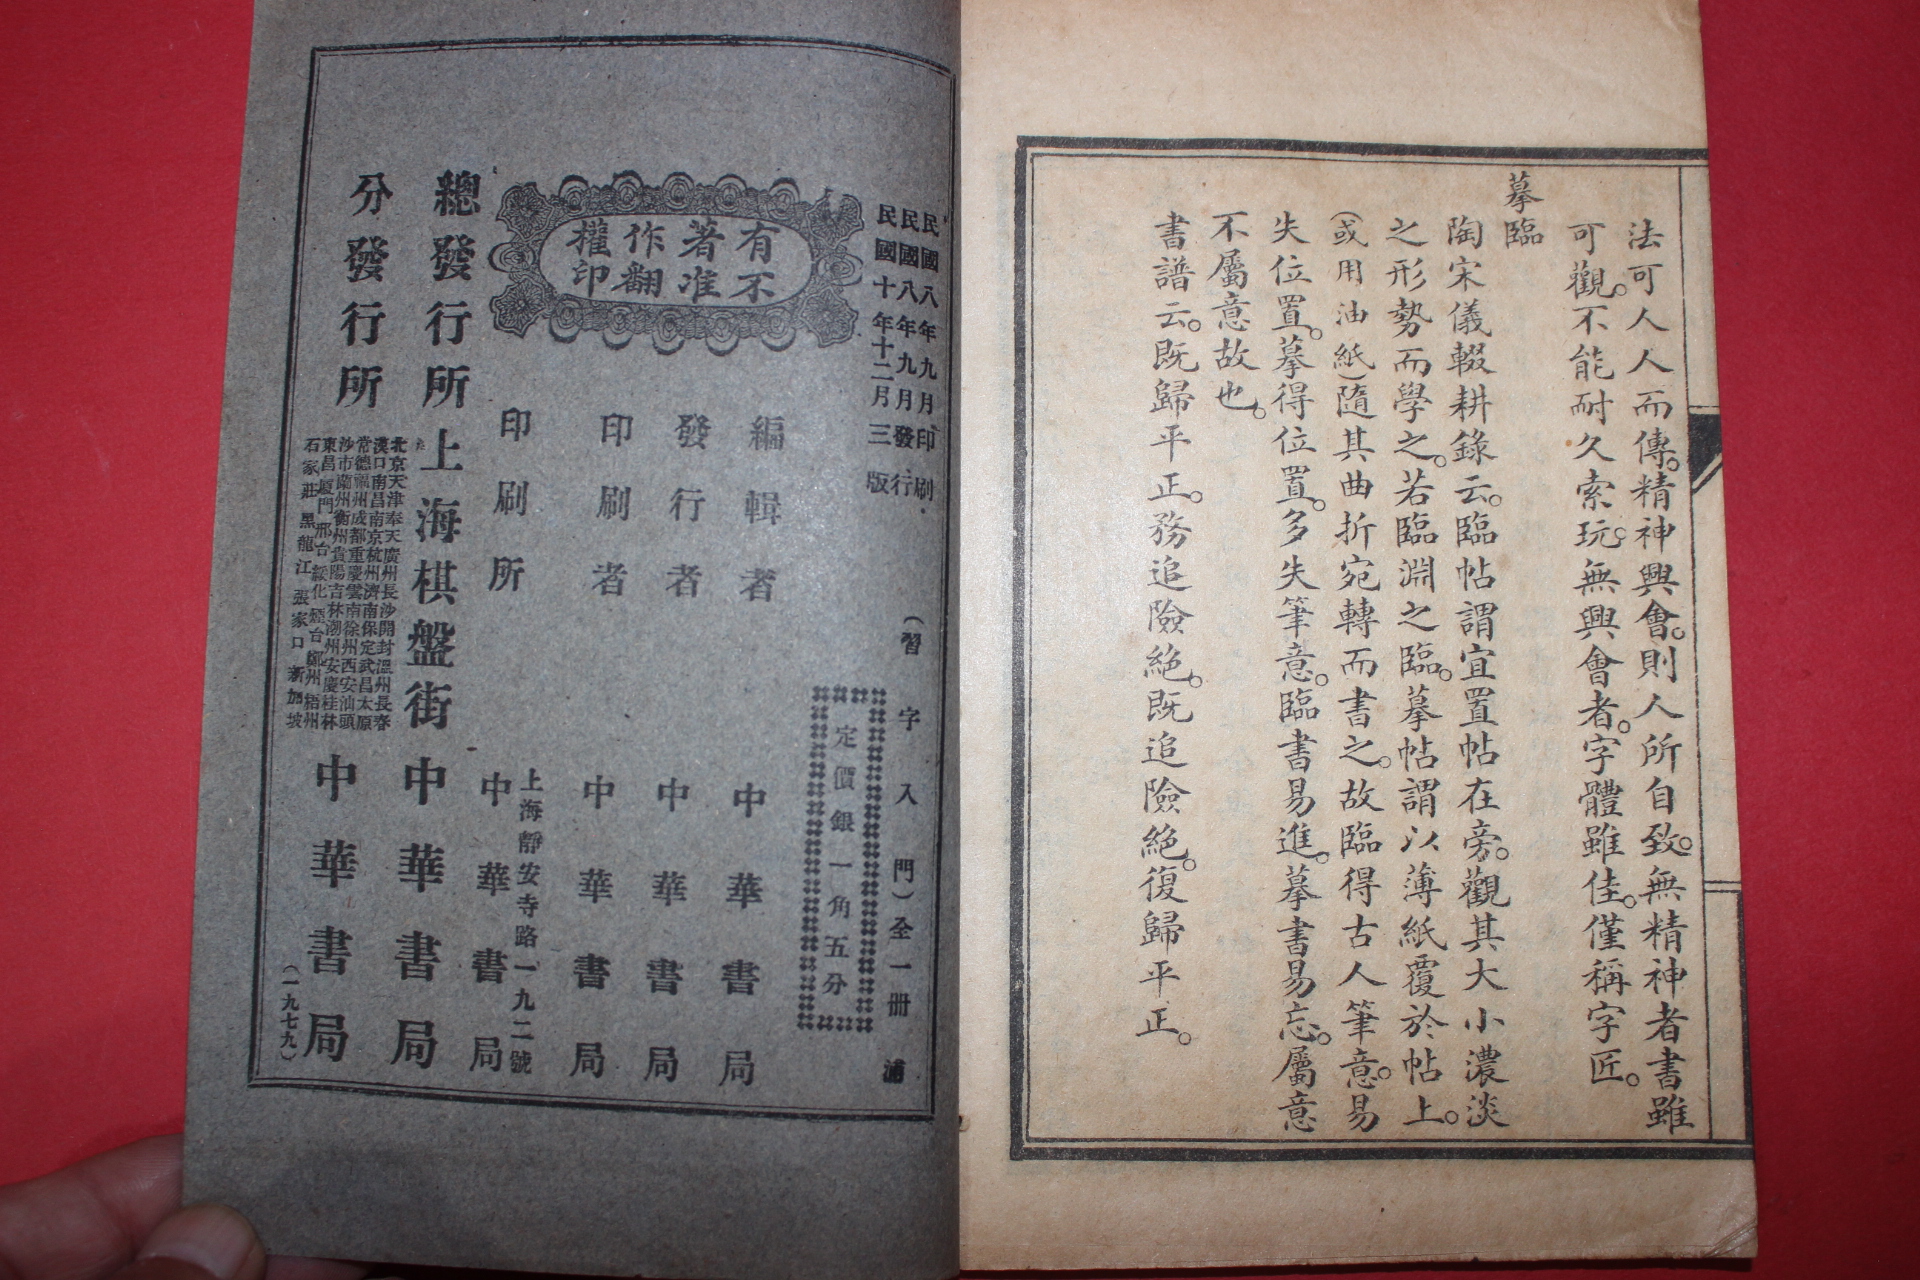 法可人人而傳。精神興會。則人所自致。無精神者書雖
可觀。不能耐久索玩。無興會者。字體雖佳。僅稱字匠。
摹臨
陶宋儀輟耕錄云。臨帖謂宜置帖在旁。觀其大小濃淡
之形勢而學之。若臨淵之臨。摹帖謂以薄紙覆於帖上。
(或用油紙)隨其曲折宛轉而書之。故臨得古人筆意。易
失位置。摹得位置。多失筆意。臨書易進。摹書易忘。屬意
不屬意故也。
書譜云。既歸平正。務追險絕。既追險絕。復歸平正。
民國八年九月印刷
民國八年九月發行
民國十年十二月三版
(習字入門)全一冊
浦
定價銀一角五分
有不
著准
作翻
權印
編輯者 中華書局
發行者 中華書局
印刷者 中華書局
上海靜安寺路一九二號
印刷所 中華書局
總發行所 上海棋盤街 中華書局
分發行所
北京天津奉天廣州長沙開封溫州長春
漢口南昌南京杭州濟南保定武昌太原
常德福州成都重慶雲南徐州西安汕頭
沙市蘭州衡州貴陽吉林潮州安慶桂林
東昌廈門邢台綏化煙台鄭州梧州
石家莊黑龍江張家口新加坡
中華書局
(一九七九)